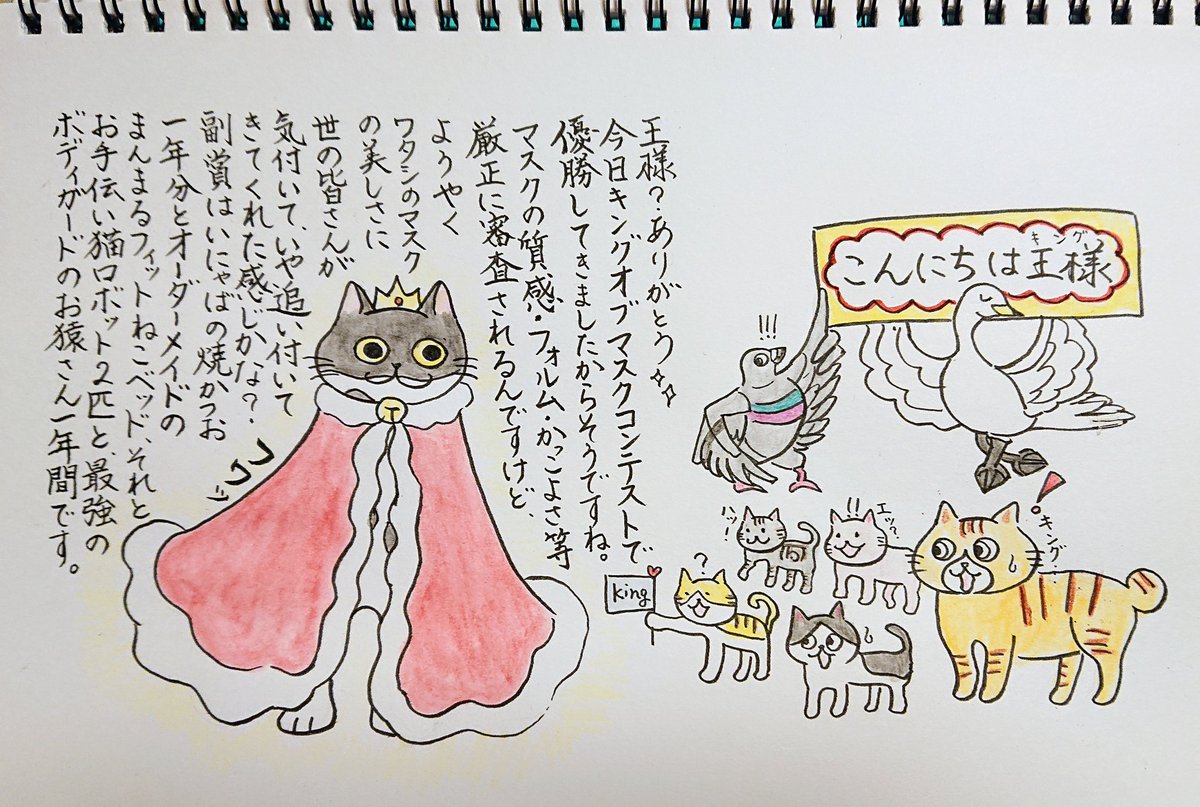 王様？ありがとう
今日キングオブマスクコンテストで
優勝してきましたからそうですね。
マスクの質感・フォルム・かっこよさ等
厳正に審査されるんですけど、
ようやく
ワタシのマスク
の美しさに
世の皆さんが
気付いて、いや追い付いて
きてくれた感じかな？
副賞はいにゃばの焼かつお
一年分とオーダーメイドの
まんまるフィットねこベッド、それと
お手伝い猫ロボット2匹と、最強の
ボディガードのお猿さん一年間です。
フワッ
T
キング
こんにちは王様
!!!
ハッ
!!
エッ?
!
キング
?
king